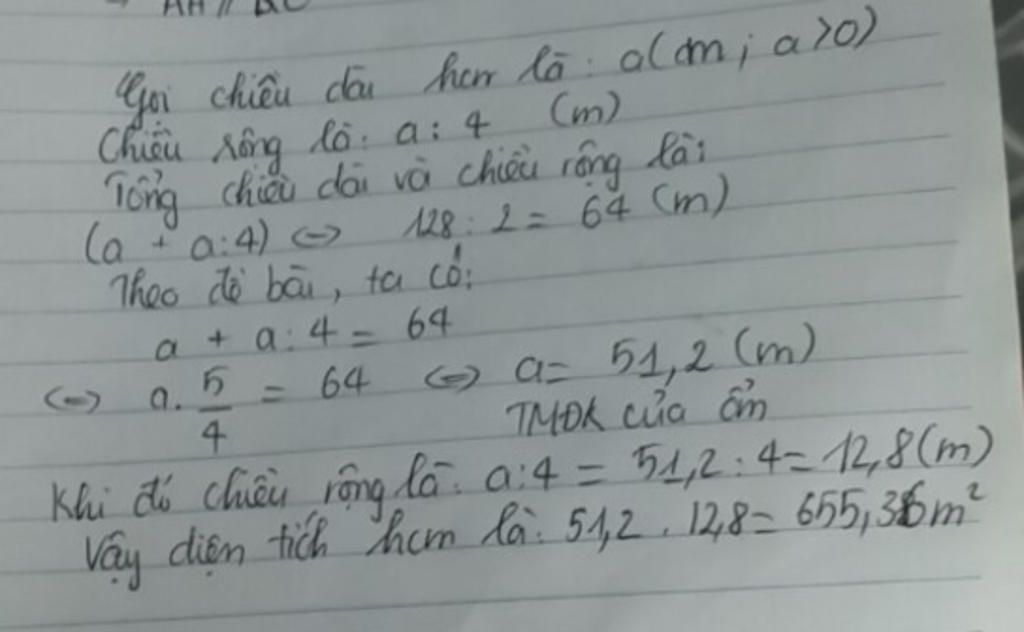 Gọi chiều dài hcn là: a(m; a>0)
Chiều rộng là: a:4 (m)
Tổng chiều dài và chiều rộng là:
(a + a:4) <=> 128:2 = 64 (m)
Theo đề bài, ta có:
a + a:4 = 64
<=> a. 5/4 = 64 <=> a = 51,2 (m)
TMĐK của ẩn
Khi đó chiều rộng là: a:4 = 51,2:4 = 12,8(m)
Vậy diện tích hcm là: 51,2 . 12,8 = 655,36m²